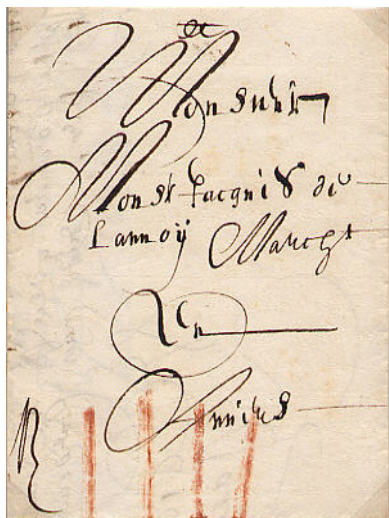 A
Monsieur
Mons.r Jacques de
Lannoÿ March.t
En
Anvers